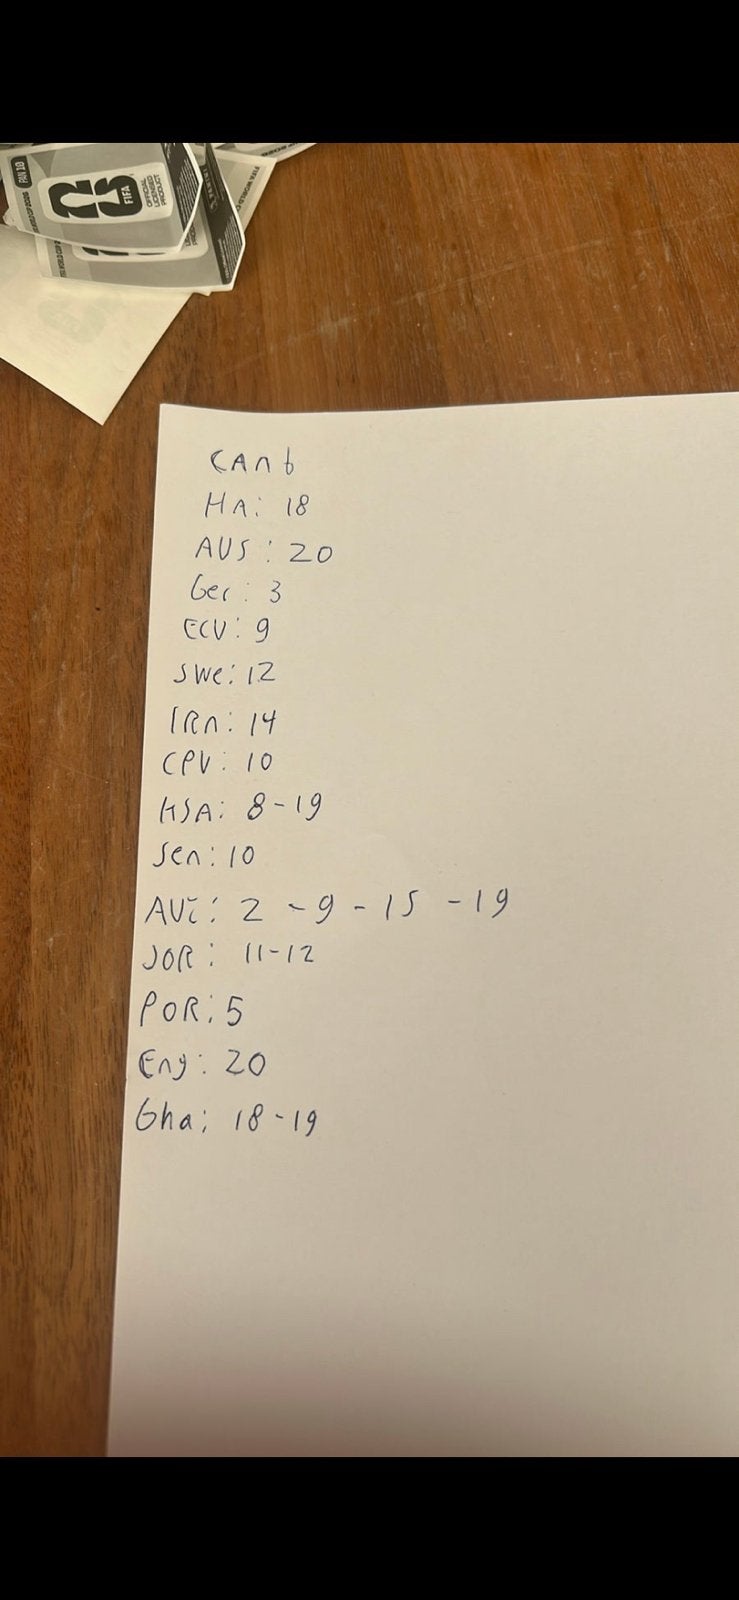 PAN 10
FIFA
OFFICIAL LICENSED PRODUCT
CAn 6
HA: 18
AUS: 20
Ger: 3
ECU: 9
swe: 12
IRn: 14
CPV: 10
KSA: 8-19
Sen: 10
AUt: 2 - 9 - 15 - 19
JOR: 11-12
POR: 5
Eng: 20
Gha: 18-19